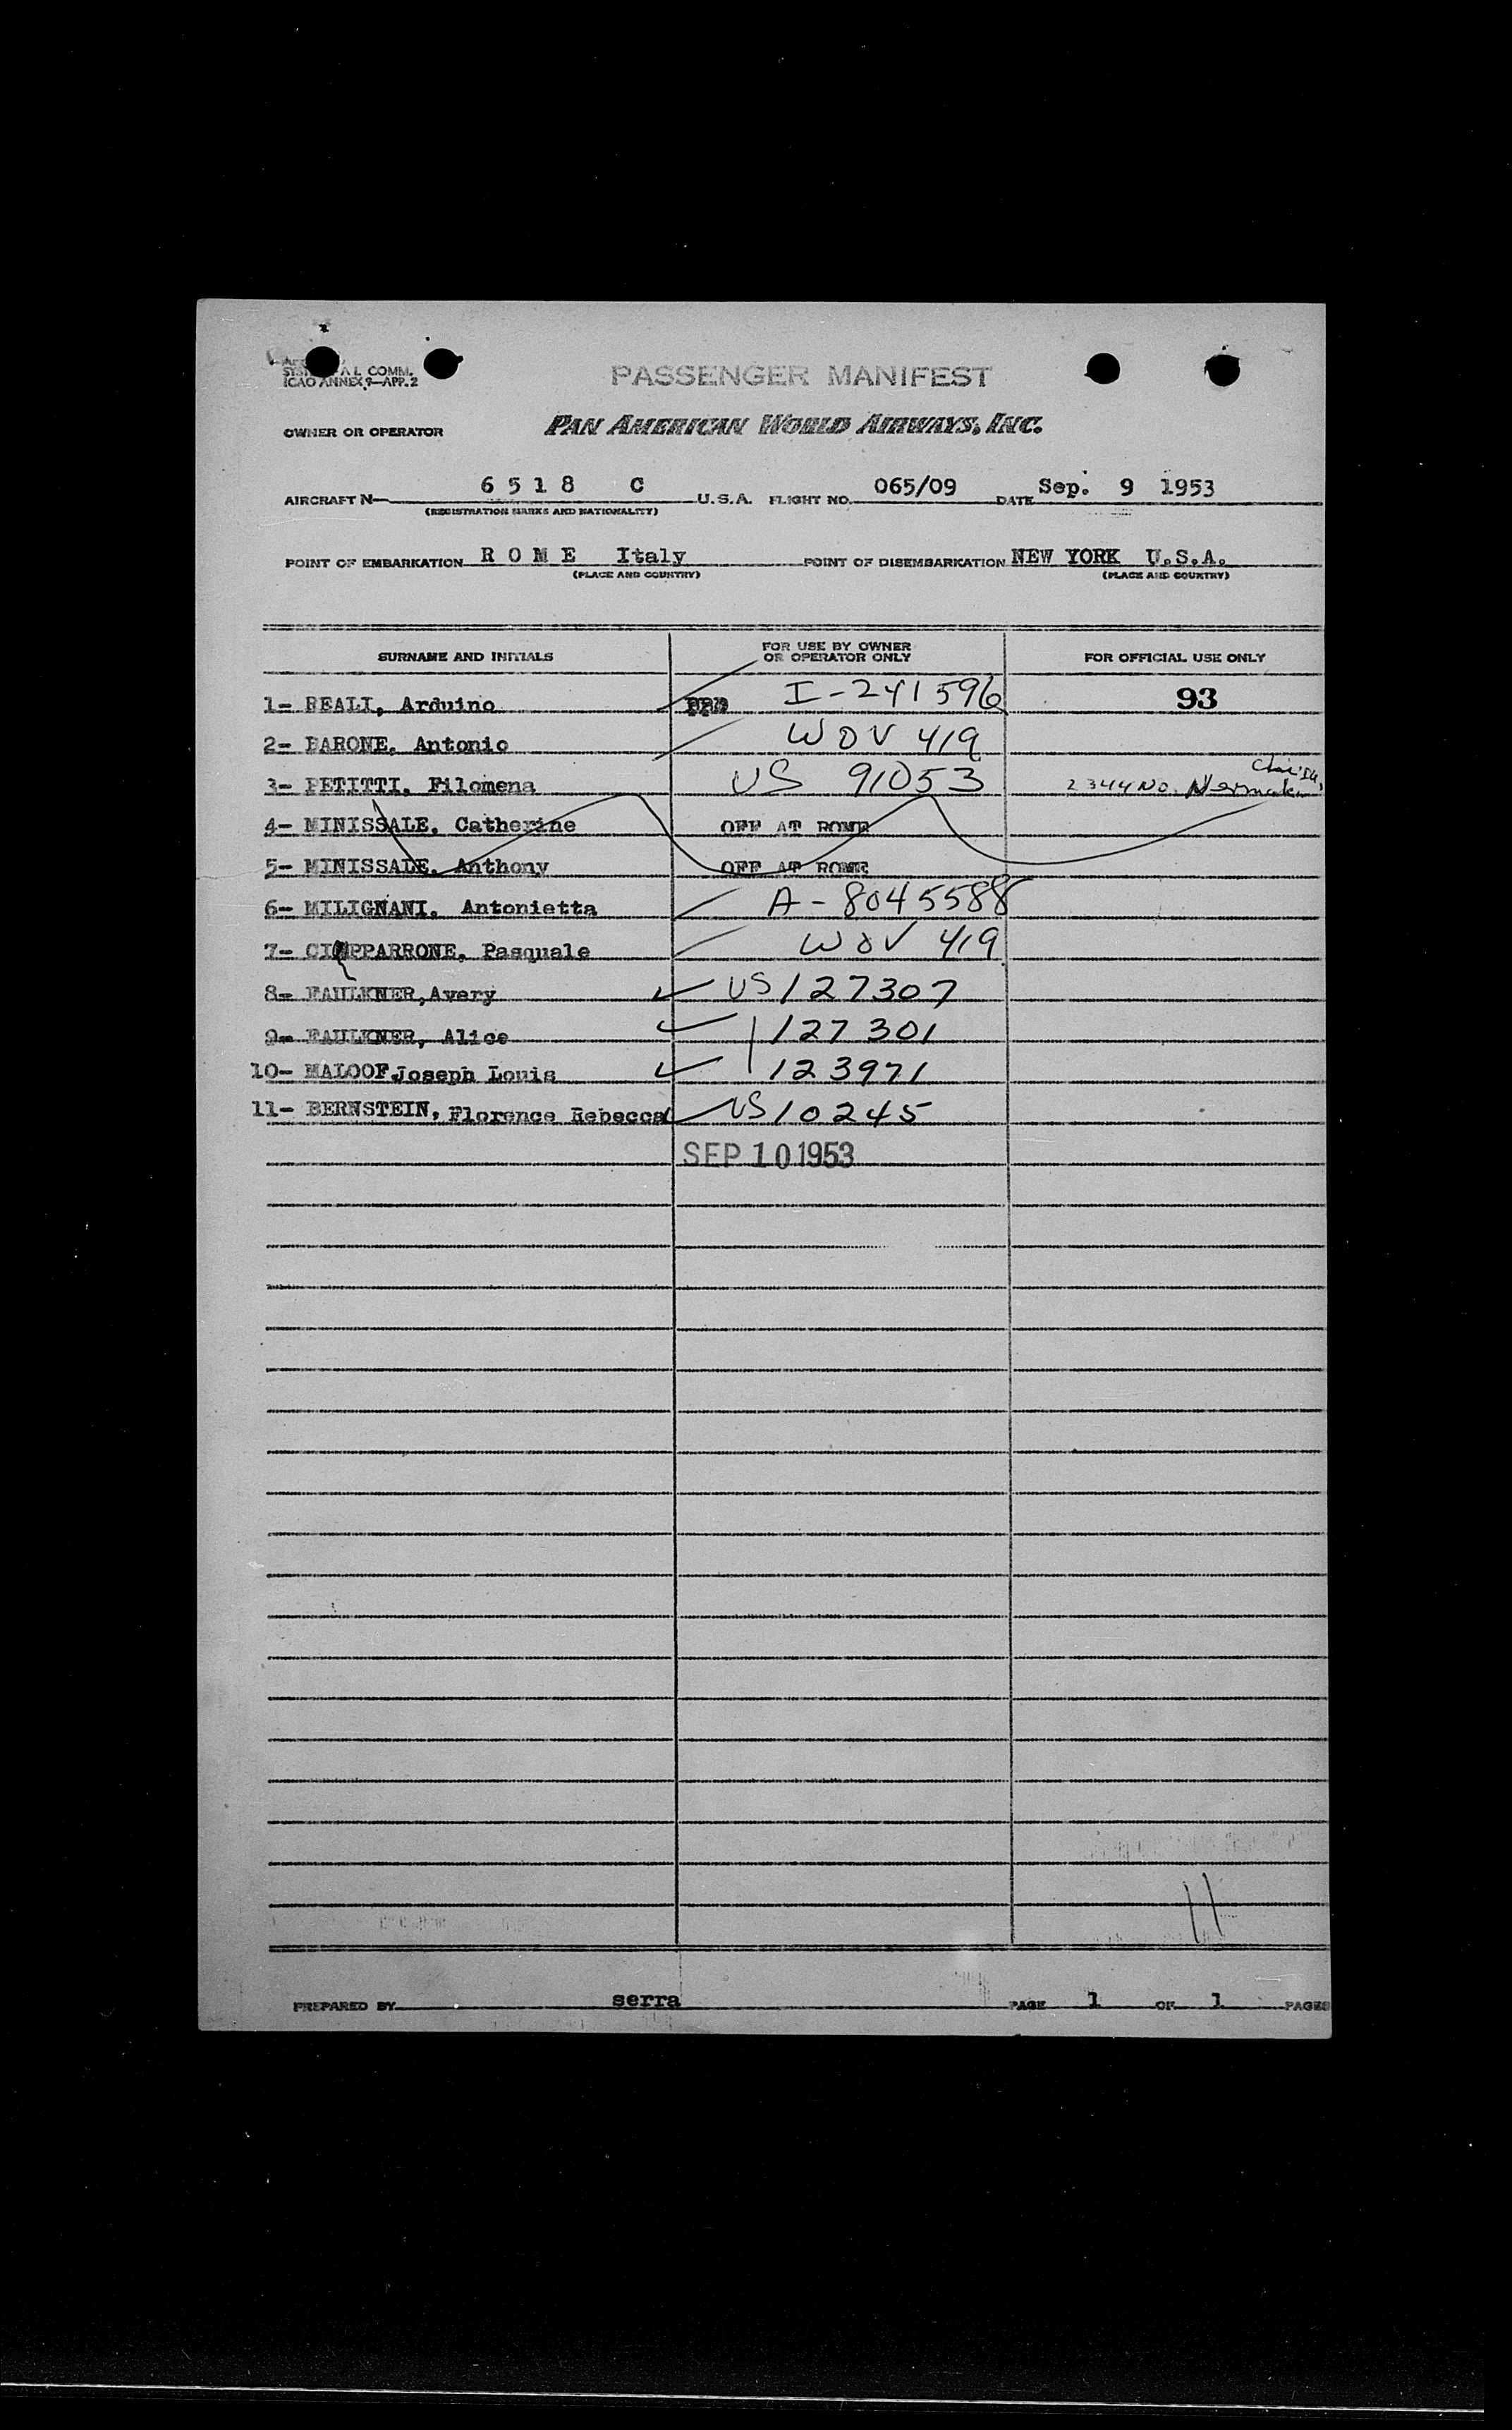 COMM.
ICAO ANNEX 9—APP. 2
PASSENGER MANIFEST
OWNER OR OPERATOR PAN AMERICAN WORLD AIRWAYS, INC.
AIRCRAFT N— 6518 C U.S.A. FLIGHT NO. 065/09 DATE Sep. 9 1953
(REGISTRATION MARKS AND NATIONALITY)
POINT OF EMBARKATION ROME Italy POINT OF DISEMBARKATION NEW YORK U.S.A.
(PLACE AND COUNTRY) (PLACE AND COUNTRY)
SURNAME AND INITIALS FOR USE BY OWNER OR OPERATOR ONLY FOR OFFICIAL USE ONLY
1- REALI, Arduino I-241596 93
2- BARONE, Antonio WOV 419
3- PETITTI, Filomena US 91053 2344 No.
4- MINISSALE, Catherine OFF AT ROME
5- MINISSALE, Anthony OFF AT ROME
6- MILIGNANI, Antonietta A-8045588
7- PPARRONE, Pasquale WOV 419
8- FAULKNER, Avery US 127307
9- FAULKNER, Alice 127301
10- MALOOF Joseph Louis 123971
11- BERNSTEIN, Florence Rebecca US 10245
SEP 10 1953
11
PREPARED BY serra PAGE 1 OF 1 PAGES